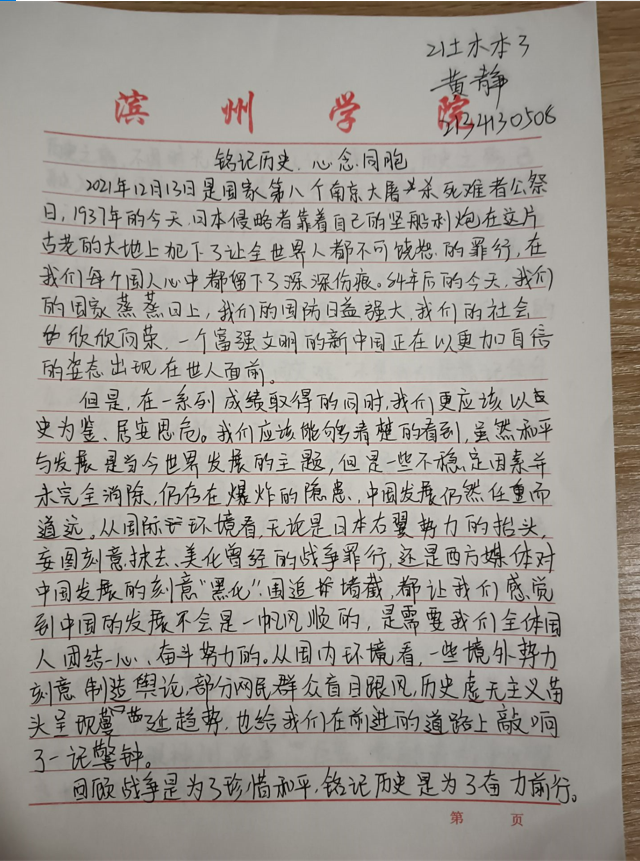 21土木本3
黄静
2134130506
滨州学院
铭记历史,心念同胞
2021年12月13日是国家第八个南京大屠杀死难者公祭
日,1937年的今天,日本侵略者靠着自己的坚船利炮在这片
古老的大地上犯下了让全世界人都不可饶恕的罪行,在
我们每个国人心中都留下了深深伤痕。84年后的今天,我们
的国家蒸蒸日上,我们的国防日益强大,我们的社会
欣欣向荣,一个富强文明的新中国正在以更加自信
的姿态出现在世人面前。
但是,在一系列成绩取得的同时,我们更应该以
史为鉴、居安思危。我们应该能够清楚的看到,虽然和平
与发展是当今世界发展的主题,但是一些不稳定因素并
未完全消除,仍存在爆炸的隐患,中国发展仍然任重而
道远。从国际环境看,无论是日本右翼势力的抬头,
妄图刻意抹去、美化曾经的战争罪行,还是西方媒体对
中国发展的刻意“黑化”、围追堵截,都让我们感觉
到中国的发展不会是一帆风顺的,是需要我们全体国
人团结一心、奋斗努力的。从国内环境看,一些境外势力
刻意制造舆论,部分网民群众盲目跟风,历史虚无主义苗
头呈现蔓延趋势,也给我们在前进的道路上敲响
了一记警钟。
回顾战争是为了珍惜和平,铭记历史是为了奋力前行。
第 页